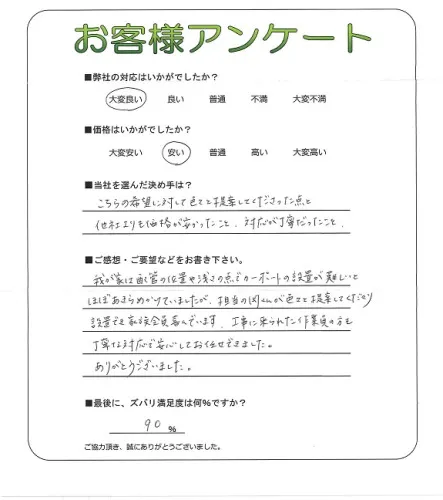 お客様アンケート
■弊社の対応はいかがでしたか？
大変良い 良い 普通 不満 大変不満
■価格はいかがでしたか？
大変安い 安い 普通 高い 大変高い
■当社を選んだ決め手は？
こちらの希望に対して色々と提案してくださった点と
他社よりも価格が安かったこと、対応が丁寧だったこと。
■ご感想・ご要望などをお書き下さい。
我が家は配管の位置や浅さの点でカーポートの設置が難しいと
ほぼあきらめかけていましたが、担当の さんが色々と提案してくださり
設置でき家族全員喜んでいます。工事に来られた作業員の方も
丁寧な対応で安心してお任せできました。
ありがとうございました。
■最後に、ズバリ満足度は何%ですか？
90 %
ご協力頂き、誠にありがとうございました。